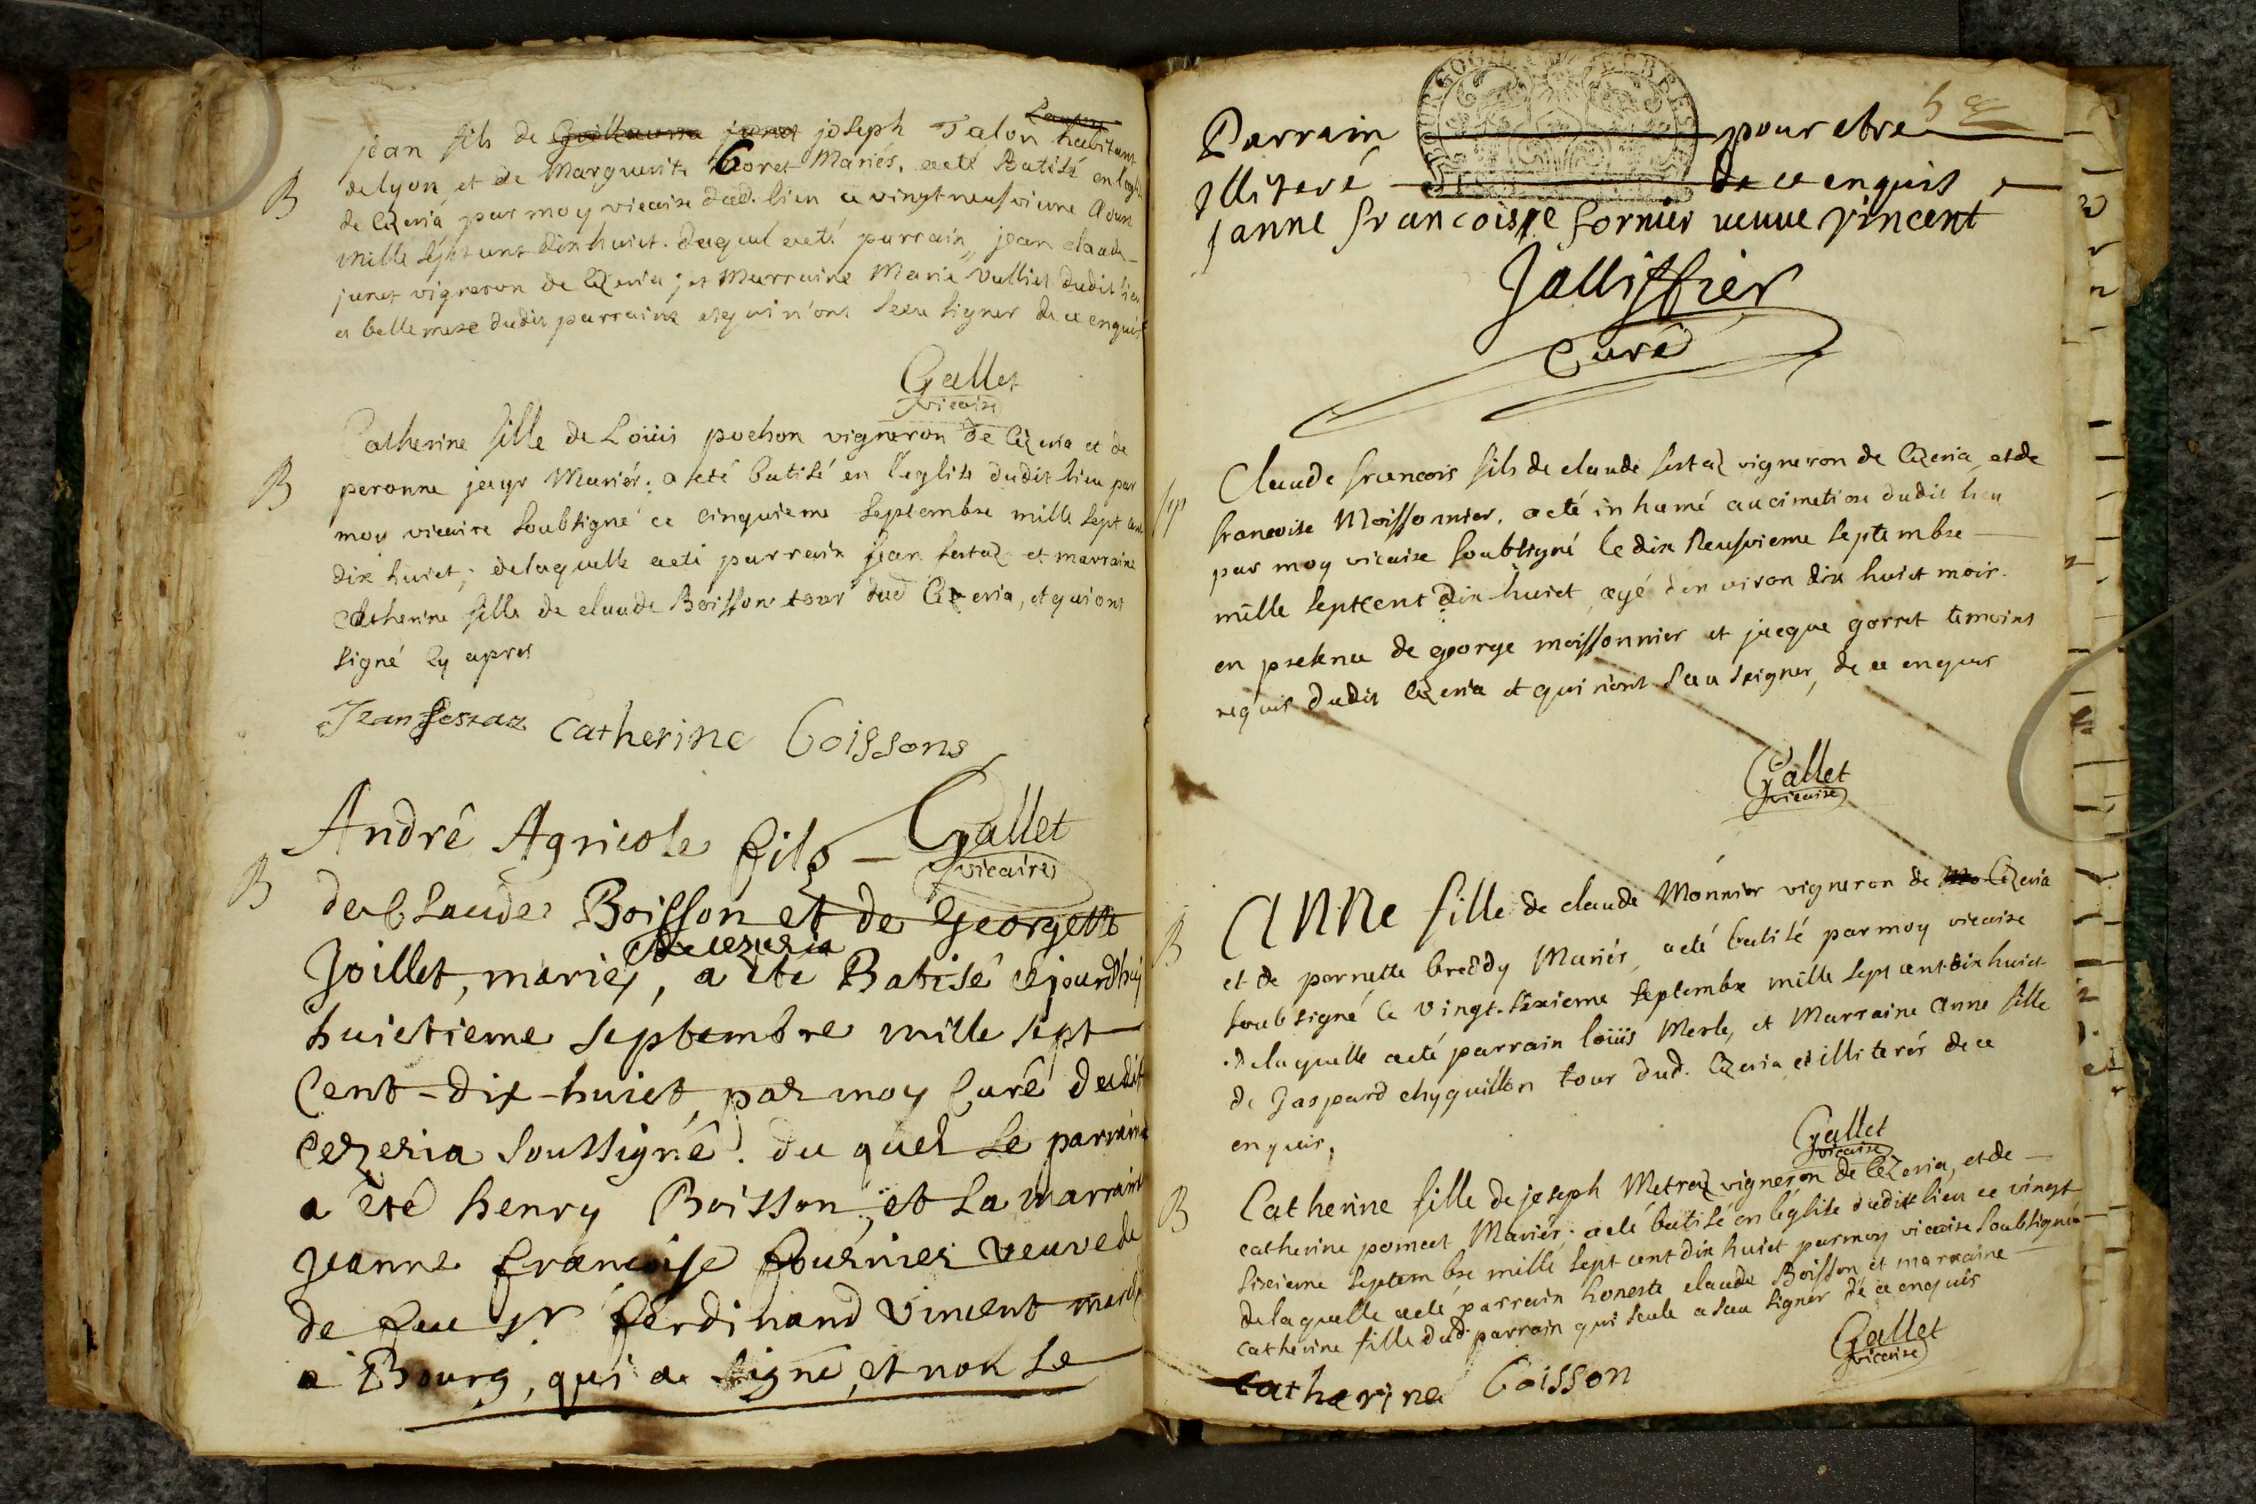 jean fils de Guillauma junet joseph Talon habitant
B
de lyon et de Marguerite boret Mariés. aeté Batisé en legli
de Cezeria par moy vicaire dud. lieu ce vingt neufvieme Aoust
mille sept cent dix huict. duquel aeté parrain jean claude
junet vigneron de Cezeria et Marraine Marie Vulliet dudit lieu
et belle mere dudit parrain et qui n'ont sceu signer de ce enquis
Gallet
vicaire
Catherine fille de Loüis pochon vigneron de Cezeria et de
B
peronne jayr Mariés; a eté batisé en l'eglise dudit lieu par
moy vicaire soubsigné ce cinquieme septembre mille sept cent
dix huict; de laquelle aeté parrain jean festaz et marraine
Catherine fille de claude Boisson tour dud Cezeria, et qui ont
signé cy apres
Jean festaz Catherine Boissons
Gallet
vicaire
André Agricole fils
B
de Claude Boisson et de Georgette
de cezeria
Joillet, mariés, a été Batisé cejourdhuy
huictieme septembre mille sept
Cent-dix-huict, par moy Curé dudit
Cezeria soussigné. du quel le parrain
a été henry Boisson, et la marraine
Jeanne françoise fournier veuve de
de feu sr ferdinand Vincent
a Bourg, qui a signé, et non le
Parrain pour etre
Illiteré de ce enquis
janne francoisse fornier veuve vincent
Jalliffier
Curé
Claude francois fils de claude festaz vigneron de Cezeria, et de
Sep
francoise Moissonnier, aeté inhumé au cimetiere dudit lieu
par moy vicaire soubsigné le dix neufvieme septembre
mille septcent dix huict, agé d'environ dix huict mois.
en presence de george moissonnier et jacque gorret temoins
requis dudit Cezeria et qui n'ont sceu signer, de ce enquis
Gallet
vicaire
Anne fille de claude Monnier vigneron de Cezeria
B
et de pernette breddy Mariés, aeté batisé par moy vicaire
soubsigné le vingt-sixieme septembre mille sept cent dix huict
de laquelle aeté parrain loüis Merle, et Marraine Anne fille
de Gaspard chyquillon tour dud. Cezeria et illiterés de ce
enquis.
Gallet
vicaire
Catherine fille de joseph Metraz vigneron de Cezeria, et de
B
catherine poncet Mariés; aeté batisé en léglise dudit lieu ce vingt
sixieme septembre mille sept cent dix huict par moy vicaire soubsigné
de laquelle aeté parrain honeste claude Boisson et marraine
catherine fille dud. parrain qui seule a sceu signer de ce enquis
Gallet
vicaire
Catherine Boisson